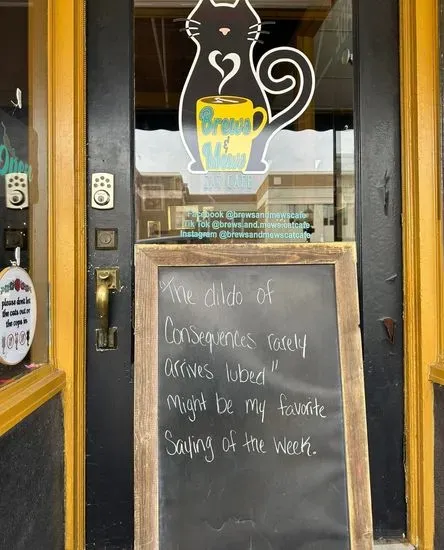 Brews
&
Mews
CAT CAFE
Facebook @brewsandmewscafe
Tik Tok @brews.and.mews
Instagram @brewsandmewscatcafe
please dont let
the cats out or
the cops in
"The dildo of
Consequences rarely
arrives lubed"
Might be my favorite
Saying of the Week.